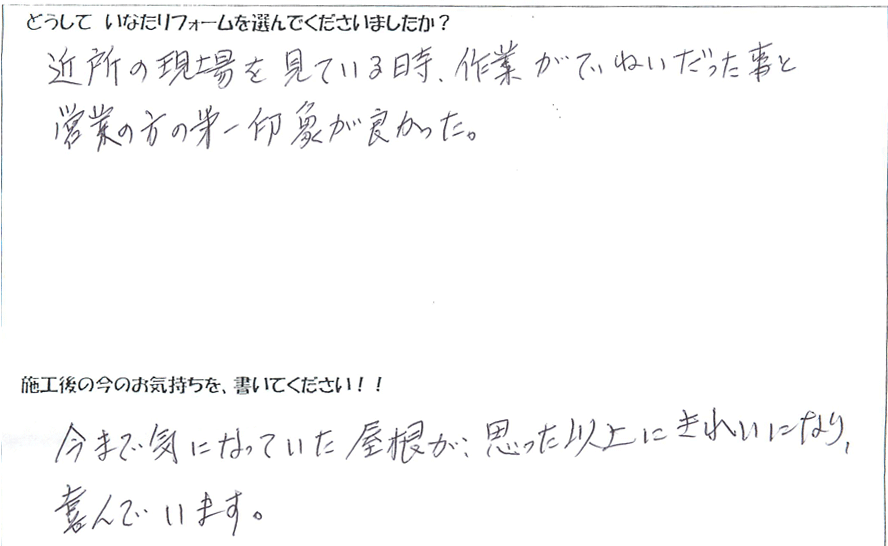 どうして いなたリフォームを選んでくださいましたか?
近所の現場を見ている時、作業がていねいだった事と
営業の方の第一印象が良かった。
施工後の今のお気持ちを、書いてください!!
今まで気になっていた屋根が、思った以上にきれいになり、
喜んでいます。